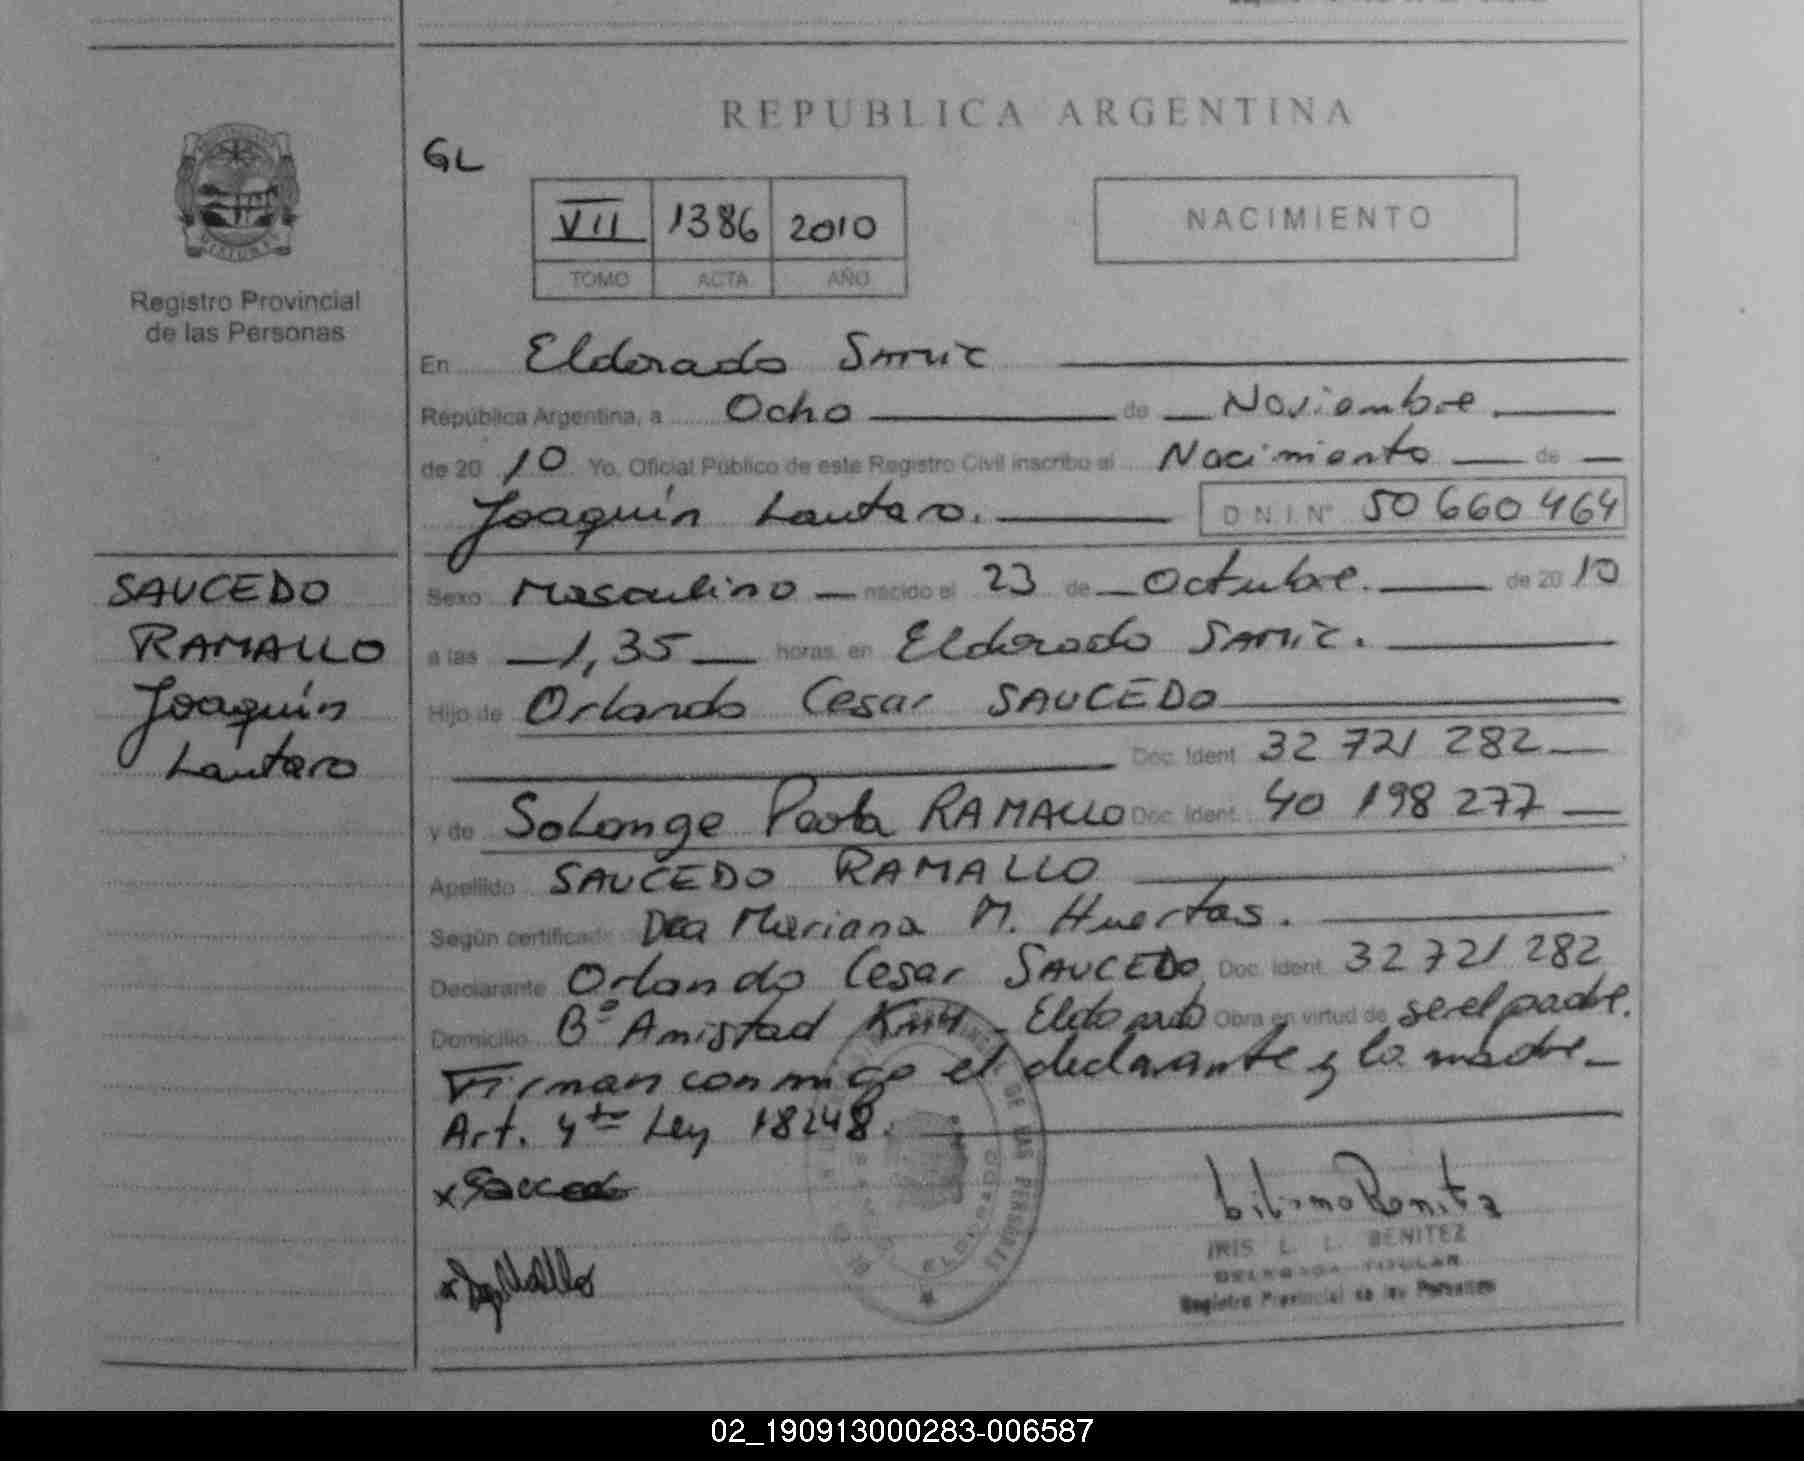 REPUBLICA ARGENTINA
GL
VII 1386 2010
TOMO ACTA AÑO
NACIMIENTO
Registro Provincial
de las Personas
En Eldorado Samic
República Argentina, a Ocho de Noviembre
de 20 10 Yo, Oficial Público de este Registro Civil inscribo el Nacimiento de
Joaquín Lautaro. D.N.I. Nº 50 660 464
SAUCEDO
RAMALLO
Joaquín
Lautaro
Sexo Masculino nacido el 23 de Octubre. de 20 10
a las 1,35 horas, en Eldorado SAMIC.
Hijo de Orlando Cesar SAUCEDO
Doc. Ident. 32 721 282
y de Solange Paola RAMALLO Doc. Ident. 40 198 277
Apellido SAUCEDO RAMALLO
Según certificado Dra Mariana M. Huertas.
Declarante Orlando Cesar SAUCEDO Doc. Ident. 32 721 282
Domicilio Bº Amistad Km4 - Eldorado Obra en virtud de ser el padre.
Firman conmigo el declarante y la madre
Art. 4to Ley 18248.
x Saucedo
DE LAS PERSONAS
ELDORADO
IRIS L. L. BENITEZ
DELEGADA TITULAR
Registro Provincial de las Personas
02_190913000283-006587